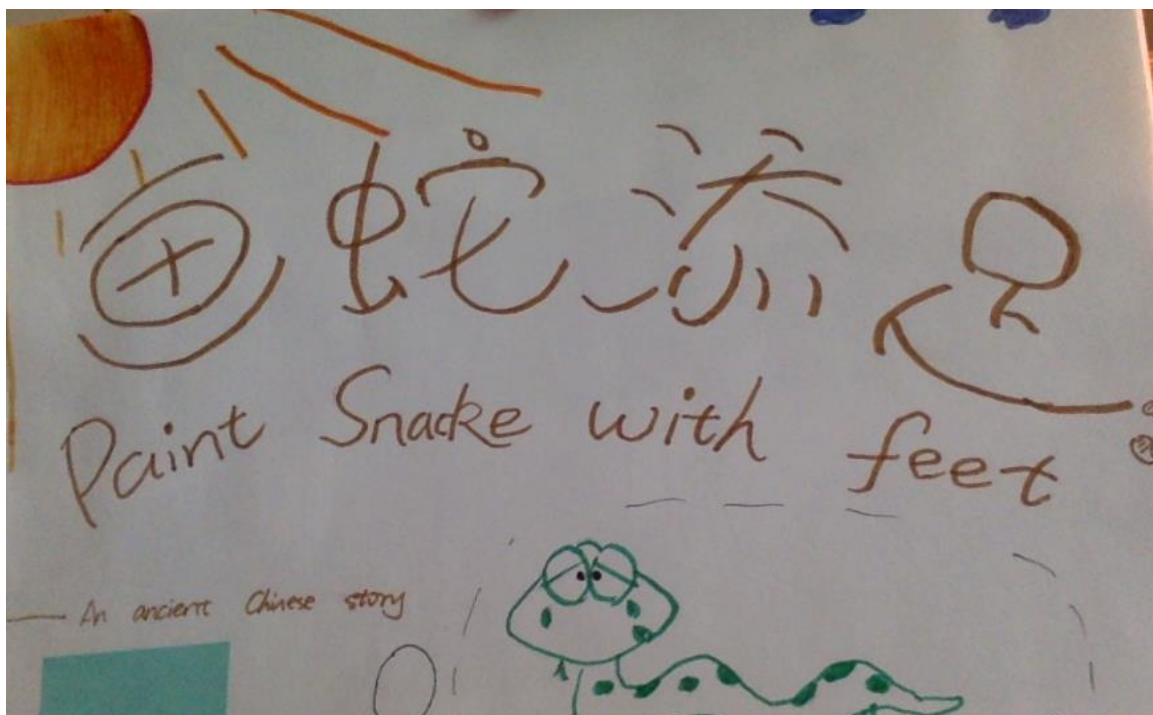 画蛇添足
Paint Snake with feet
— An ancient Chinese story